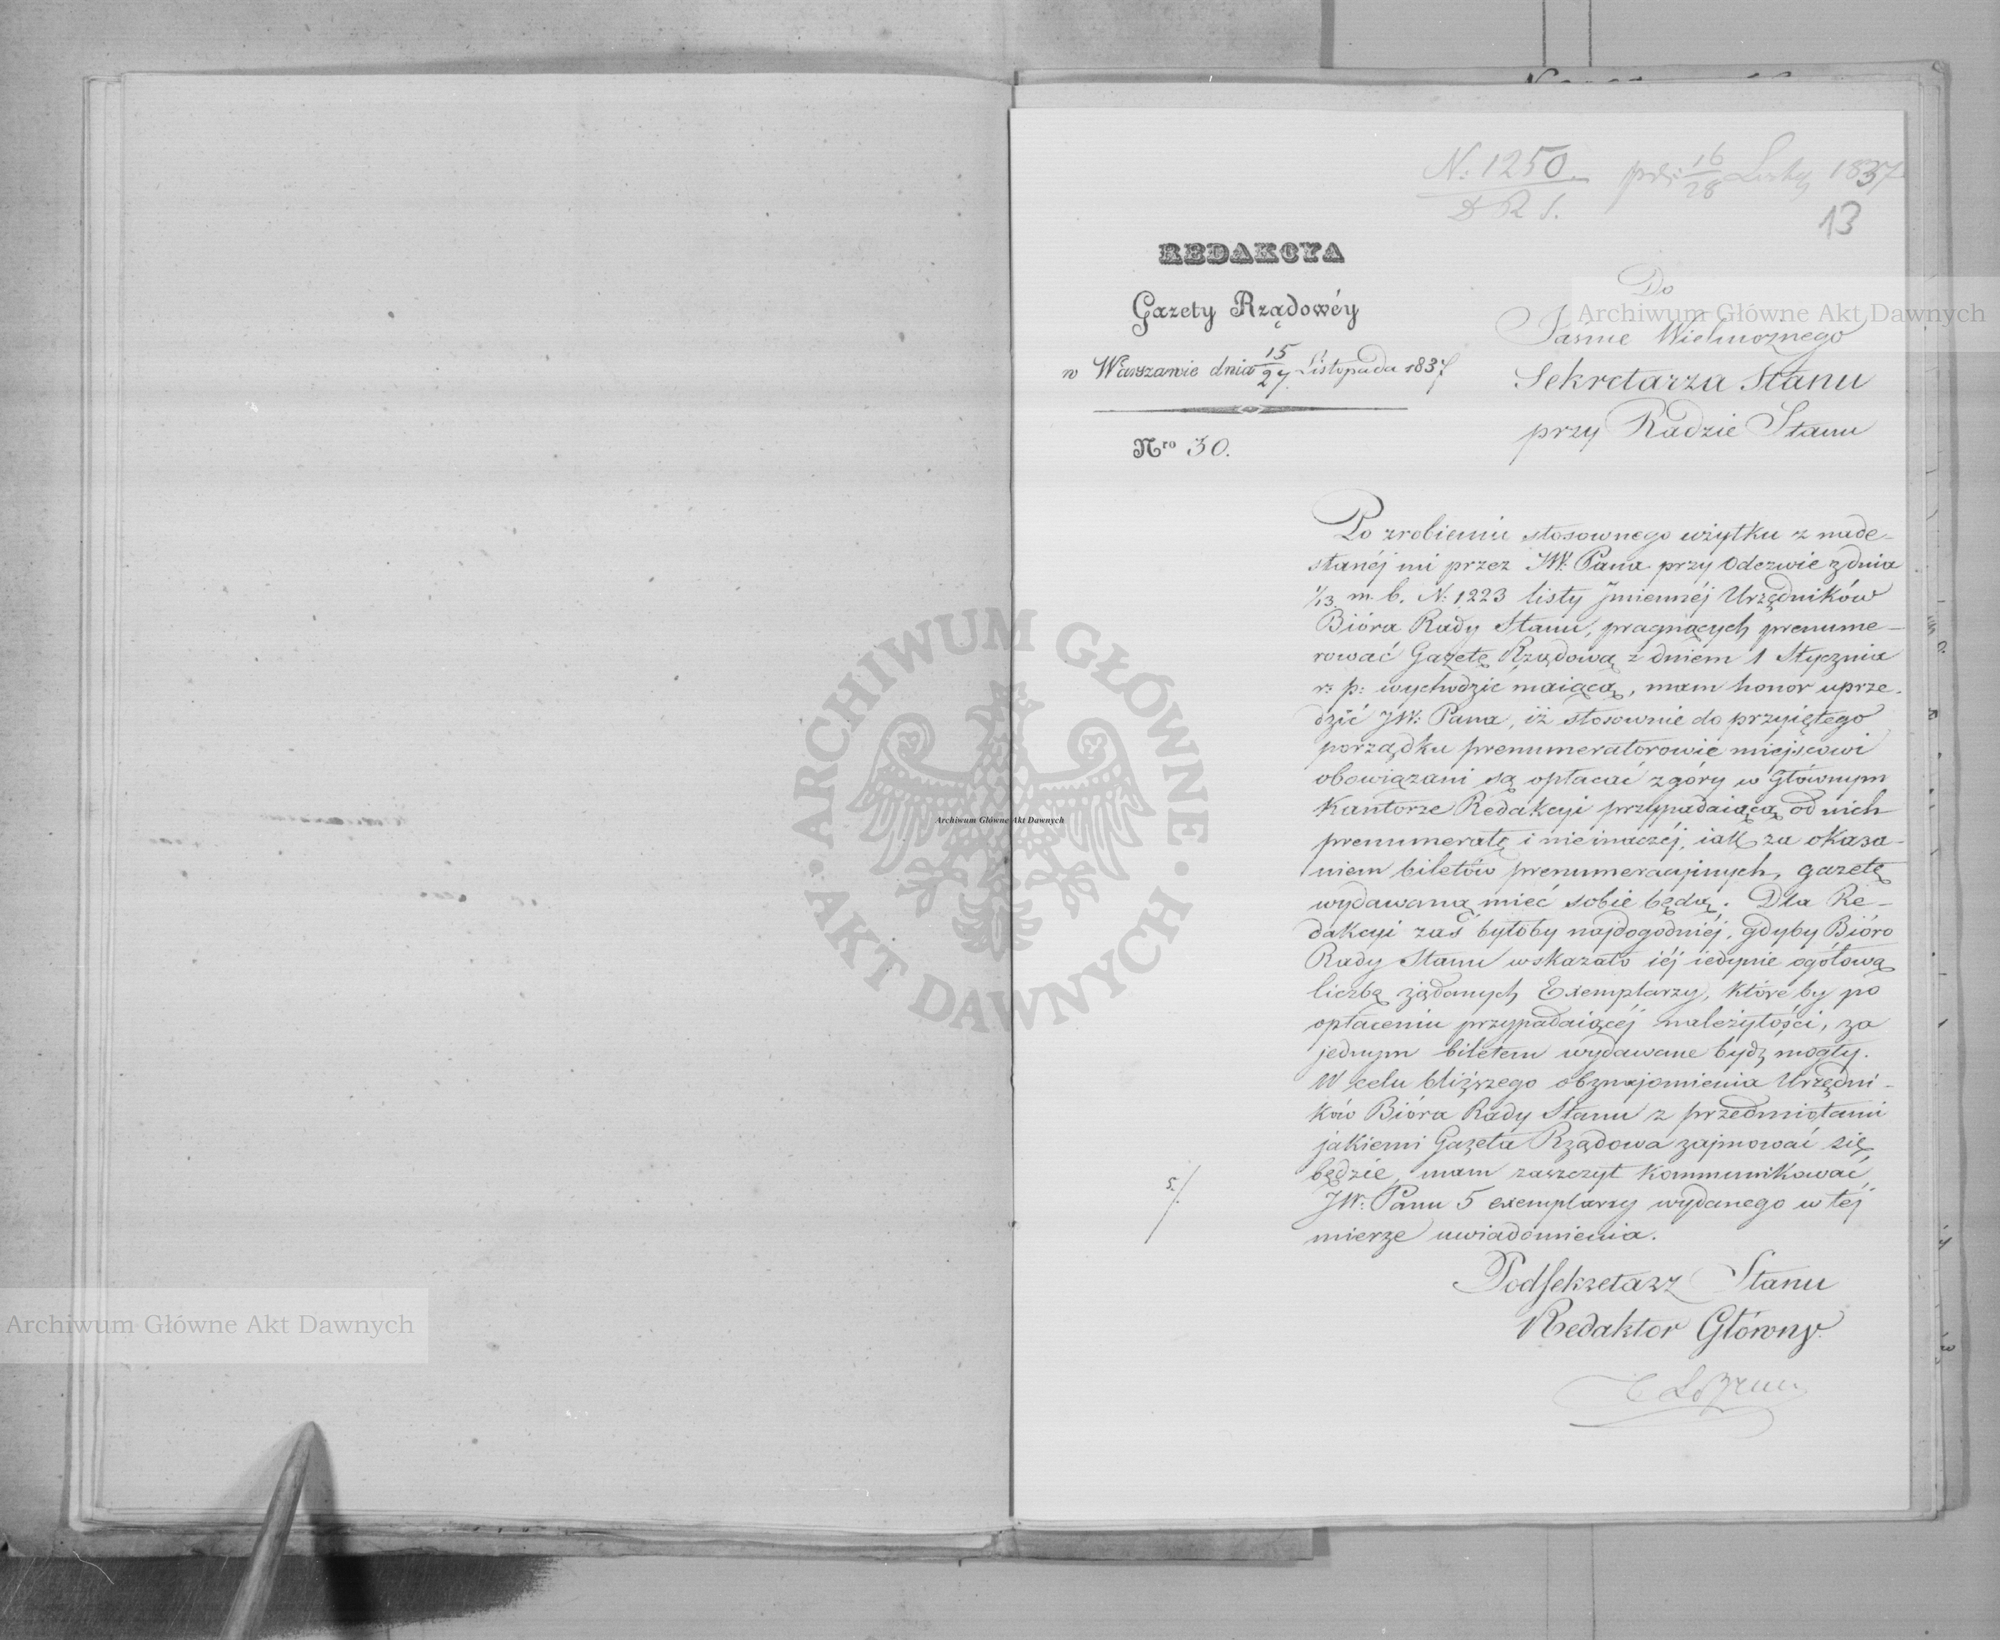 N: 1250.
D R S.
16/28 1837
13
REDAKCYA
Gazety Rządowéy
w Warszawie dnia 15/27 Listopada 1837
Nro 30.
Do
Jaśnie Wielmożnego
Sekretarza Stanu
przy Radzie Stanu
Po zrobieniu stosownego użytku z nade-
słanéj mi przez JW: Pana przy Odezwie z dnia
1/13 m. b. N: 1223 listy Jmiennéj Urzędników
Bióra Rady Stanu, pragnących prenume-
rować Gazetę Rządową z dniem 1 Stycznia
r: p: wychodzić maiącą, mam honor uprze-
dzić JW: Pana, iż stosownie do przyiętego
porządku prenumeratorowie miejscowi
obowiązani są opłacać z góry w Głównym
Kantorze Redakcyi przypadaiącą od nich
prenumeratę i nieinaczéj, iak za okaza-
niem biletów prenumeracyjnych, gazetę
wydawaną mieć sobie będą. Dla Re-
dakcyi zaś byłoby najdogodniéj, gdyby Bióro
Rady Stanu wskazało iéj iedynie ogółową
liczbę żądanych Exemplarzy, które by po
opłaceniu przypadaiącéj należytości, za
jednym biletem wydawane bydź mogły.
W celu bliższego obznajomienia Urzędni-
ków Bióra Rady Stanu z przedmiotami
jakiemi Gazeta Rządowa zajmować się
będzie, mam zaszczyt kommunikować
5./.
JW: Panu 5 exemplarzy wydanego w téj
mierze uwiadomienia.
Podsekretarz Stanu
Redaktor Główny
Archiwum Główne Akt Dawnych
Archiwum Główne Akt Dawnych
Archiwum Główne Akt Dawnych
ARCHIWUM GŁÓWNE
AKT DAWNYCH